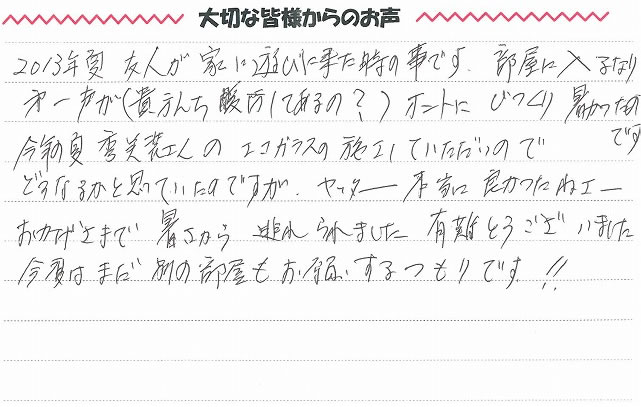 大切な皆様からのお声
2013年夏 友人が家に遊びに来た時の事です。部屋に入るなり
オ一声が(貴方んち暖房してあるの?)ホントにびっくり暑かったの
です
今年の夏 秀美装さんのエコガラスの施工していただいので
どうなるかと思っていたのですが、ヤッター 本当に良かったねェー
おかげさまで 暑さから 逃れられました 有難とうございました
今度はまだ別の部屋もお願いするつもりです!!